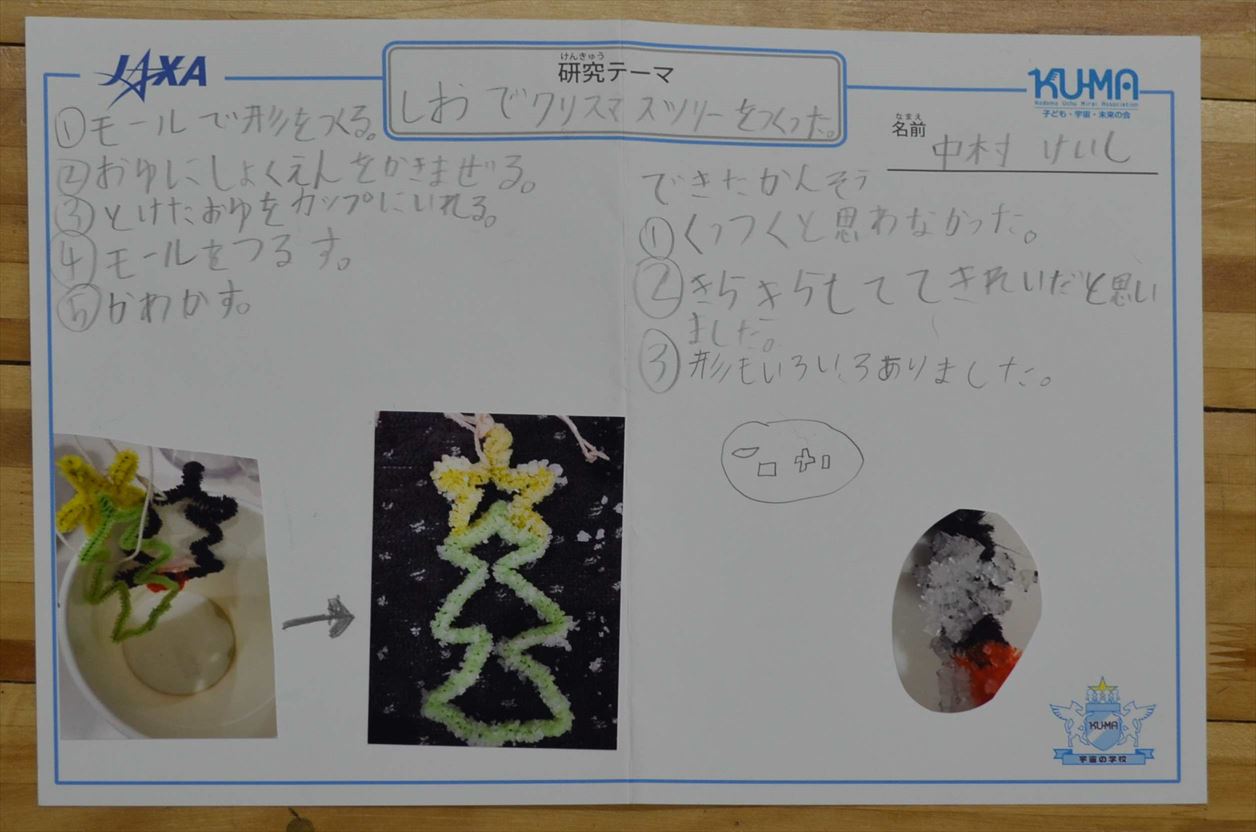 JAXA
けんきゅう
研究テーマ
しおでクリスマスツリーをつくった。
KU-MA
Kodomo Uchu Mirai Association
子ども・宇宙・未来の会
なまえ
名前
中村 けいし
①モールで形をつくる。
②おゆにしょくえんをかきまぜる。
③とけたおゆをカップにいれる。
④モールをつるす。
⑤かわかす。
できたかんそう
①くっつくと思わなかった。
②きらきらしててきれいだと思い
ました。
③形もいろいろありました。
KU-MA
宇宙の学校